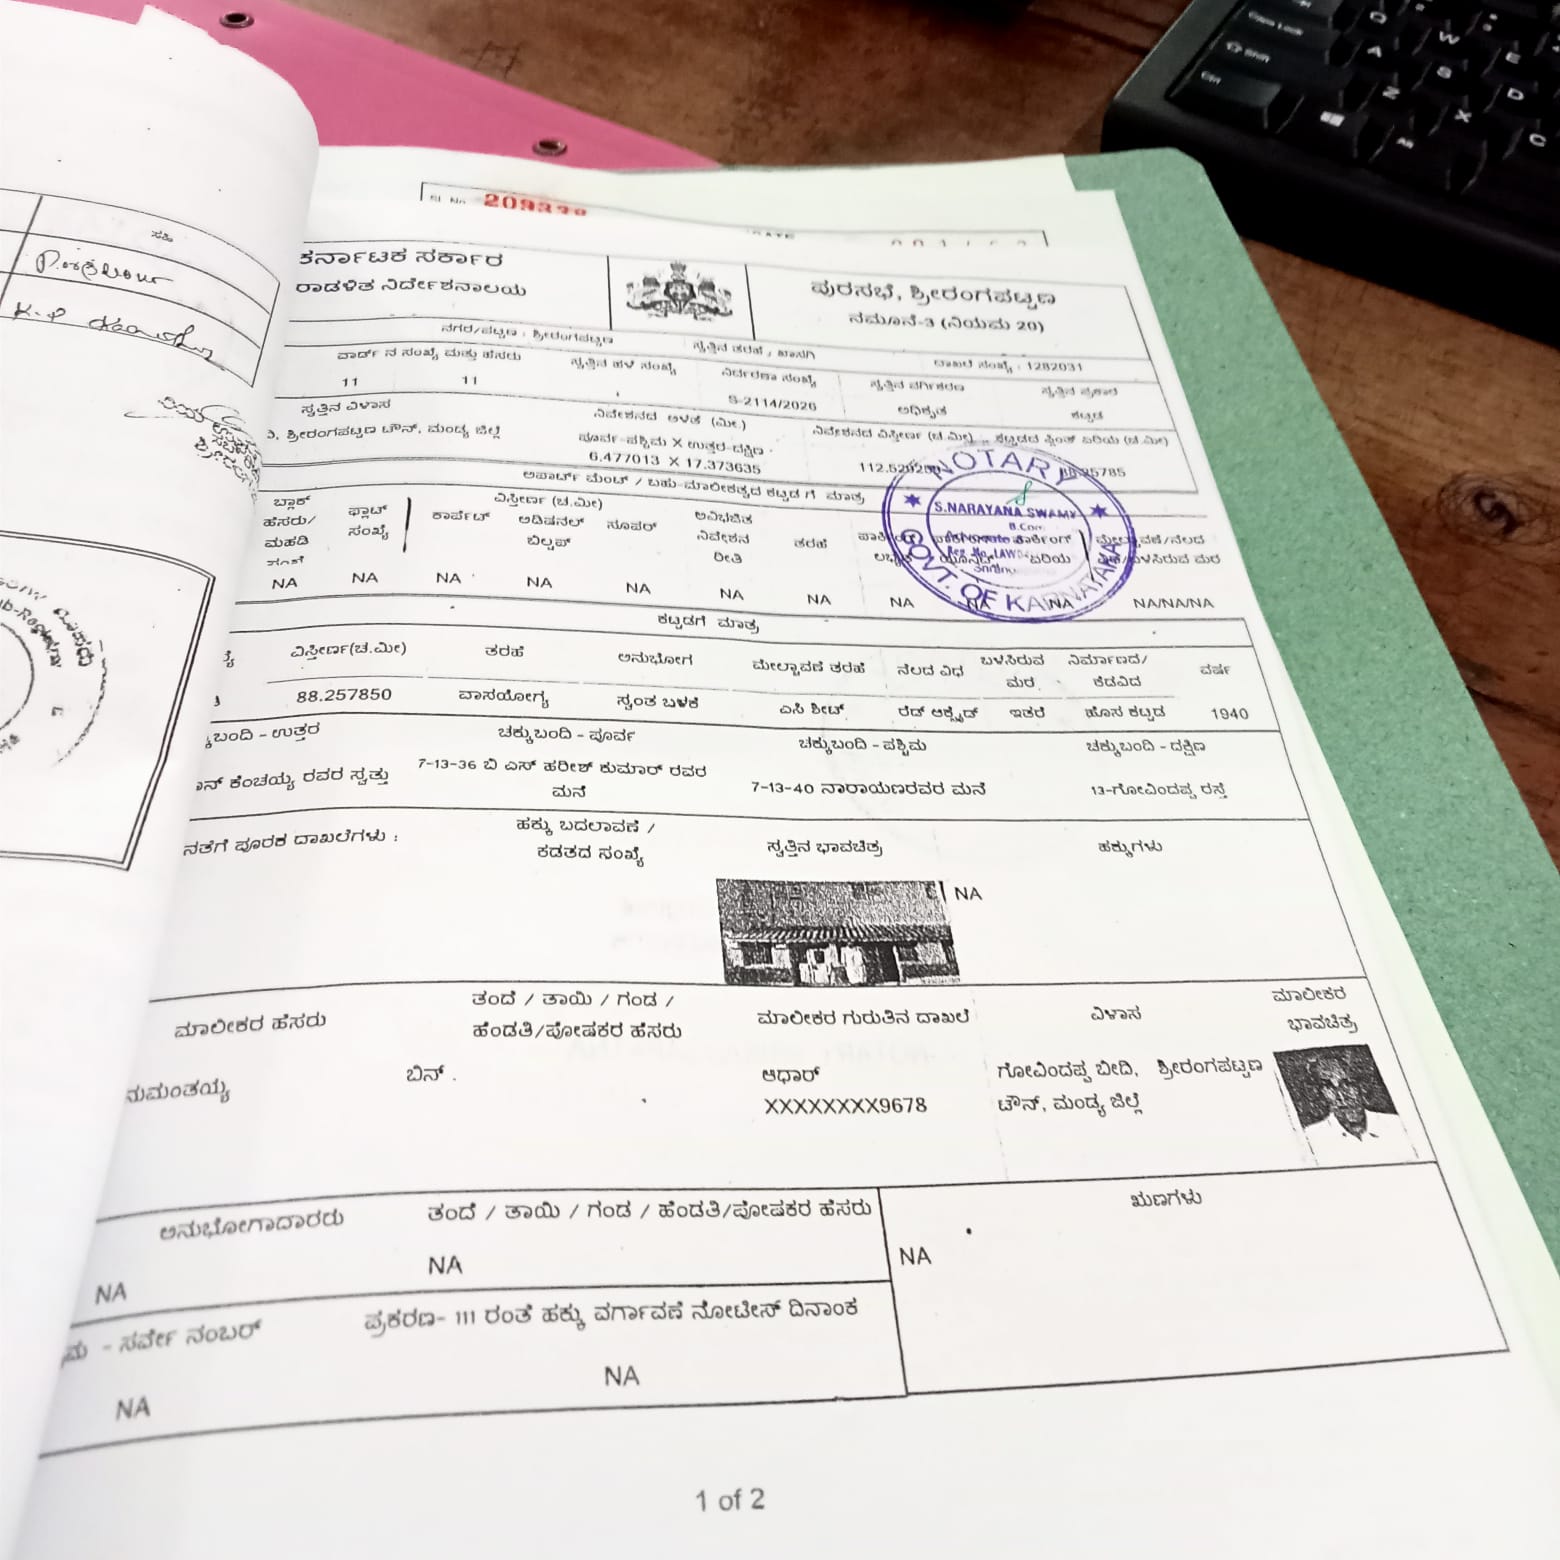 Sl. No. 209338
ಸಹಿ
ಕರ್ನಾಟಕ ಸರ್ಕಾರ
ರಾಡಳಿತ ನಿರ್ದೇಶನಾಲಯ
ಪುರಸಭೆ, ಶ್ರೀರಂಗಪಟ್ಟಣ
ನಮೂನೆ-3 (ನಿಯಮ 20)
ನಗರ/ಪಟ್ಟಣ : ಶ್ರೀರಂಗಪಟ್ಟಣ ಸ್ವತ್ತಿನ ತರಹೆ : ಖಾಸಗಿ ದಾಖಲೆ ಸಂಖ್ಯೆ : 1282031
ವಾರ್ಡ್ ನ ಸಂಖ್ಯೆ ಮತ್ತು ಹೆಸರು ಸ್ವತ್ತಿನ ಹಳೆ ಸಂಖ್ಯೆ ನಿರ್ದರಣಾ ಸಂಖ್ಯೆ ಸ್ವತ್ತಿನ ವರ್ಗೀಕರಣ ಸ್ವತ್ತಿನ ಪ್ರಕಾರ
11 11 S-2114/2026 ಅಧಿಕೃತ ಕಟ್ಟಡ
ಸ್ವತ್ತಿನ ವಿಳಾಸ ನಿವೇಶನದ ಅಳತೆ (ಮೀ.) ನಿವೇಶನದ ವಿಸ್ತೀರ್ಣ (ಚ.ಮೀ) ಕಟ್ಟಡದ ಪ್ಲಿಂತ್ ಏರಿಯ (ಚ.ಮೀ)
ಶ್ರೀರಂಗಪಟ್ಟಣ ಟೌನ್, ಮಂಡ್ಯ ಜಿಲ್ಲೆ ಪೂರ್ವ-ಪಶ್ಚಿಮ X ಉತ್ತರ-ದಕ್ಷಿಣ
6.477013 X 17.373635
ಅಪಾರ್ಟ್ ಮೆಂಟ್ / ಬಹು-ಮಾಲೀಕತ್ವದ ಕಟ್ಟಡ ಗೆ ಮಾತ್ರ
NOTARY
S.NARAYANA SWAMY
B.Com
GOVT. OF KARNATAKA
ವಿಸ್ತೀರ್ಣ (ಚ.ಮೀ)
ಬ್ಲಾಕ್ ಹೆಸರು/ ಮಹಡಿ ಫ್ಲಾಟ್ ಸಂಖ್ಯೆ ಕಾರ್ಪೆಟ್ ಅಡಿಷನಲ್ ಬಿಲ್ಟಪ್ ಸೂಪರ್ ಅವಿಭಜಿತ ನಿವೇಶನ ರೀತಿ ತರಹೆ
NA NA NA NA NA NA NA NA NA NA NA/NA/NA
ಕಟ್ಟಡಗೆ ಮಾತ್ರ
ವಿಸ್ತೀರ್ಣ(ಚ.ಮೀ) ತರಹೆ ಅನುಭೋಗ ಮೇಲ್ಚಾವಣಿ ತರಹೆ ನೆಲದ ವಿಧ ಬಳಸಿರುವ ಮರ ನಿರ್ಮಾಣದ/ಕೆಡವಿದ ವರ್ಷ
88.257850 ವಾಸಯೋಗ್ಯ ಸ್ವಂತ ಬಳಕೆ ಎಸಿ ಶೀಟ್ ರೆಡ್ ಆಕ್ಸೈಡ್ ಇತರೆ ಹೊಸ ಕಟ್ಟಡ 1940
ಕ್ಕುಬಂದಿ - ಉತ್ತರ ಚಕ್ಕುಬಂದಿ - ಪೂರ್ವ ಚಕ್ಕುಬಂದಿ - ಪಶ್ಚಿಮ ಚಕ್ಕುಬಂದಿ - ದಕ್ಷಿಣ
ಕೆಂಚಯ್ಯ ರವರ ಸ್ವತ್ತು 7-13-36 ಬಿ ಎಸ್ ಹರೀಶ್ ಕುಮಾರ್ ರವರ 7-13-40 ನಾರಾಯಣರವರ ಮನೆ 13-ಗೋವಿಂದಪ್ಪ ರಸ್ತೆ
ಮನೆ
ನತೆಗೆ ಪೂರಕ ದಾಖಲೆಗಳು : ಹಕ್ಕು ಬದಲಾವಣೆ / ಸ್ವತ್ತಿನ ಭಾವಚಿತ್ರ ಹಕ್ಕುಗಳು
ಕಡತದ ಸಂಖ್ಯೆ
NA
ಮಾಲೀಕರ ಹೆಸರು ತಂದೆ / ತಾಯಿ / ಗಂಡ / ಮಾಲೀಕರ ಗುರುತಿನ ದಾಖಲೆ ವಿಳಾಸ ಮಾಲೀಕರ
ಹೆಂಡತಿ/ಪೋಷಕರ ಹೆಸರು ಭಾವಚಿತ್ರ
ನುಮಂತಯ್ಯ ಬಿನ್ . ಆಧಾರ್ ಗೋವಿಂದಪ್ಪ ಬೀದಿ, ಶ್ರೀರಂಗಪಟ್ಟಣ
XXXXXXXX9678 ಟೌನ್, ಮಂಡ್ಯ ಜಿಲ್ಲೆ
ಅನುಭೋಗಾದಾರರು ತಂದೆ / ತಾಯಿ / ಗಂಡ / ಹೆಂಡತಿ/ಪೋಷಕರ ಹೆಸರು ಋಣಗಳು
NA NA NA
- ಸರ್ವೇ ನಂಬರ್ ಪ್ರಕರಣ- 111 ರಂತೆ ಹಕ್ಕು ವರ್ಗಾವಣೆ ನೋಟೀಸ್ ದಿನಾಂಕ
NA NA
1 of 2
Caps Lock
Shift
Ctrl
Q W E
A S D
Z X C